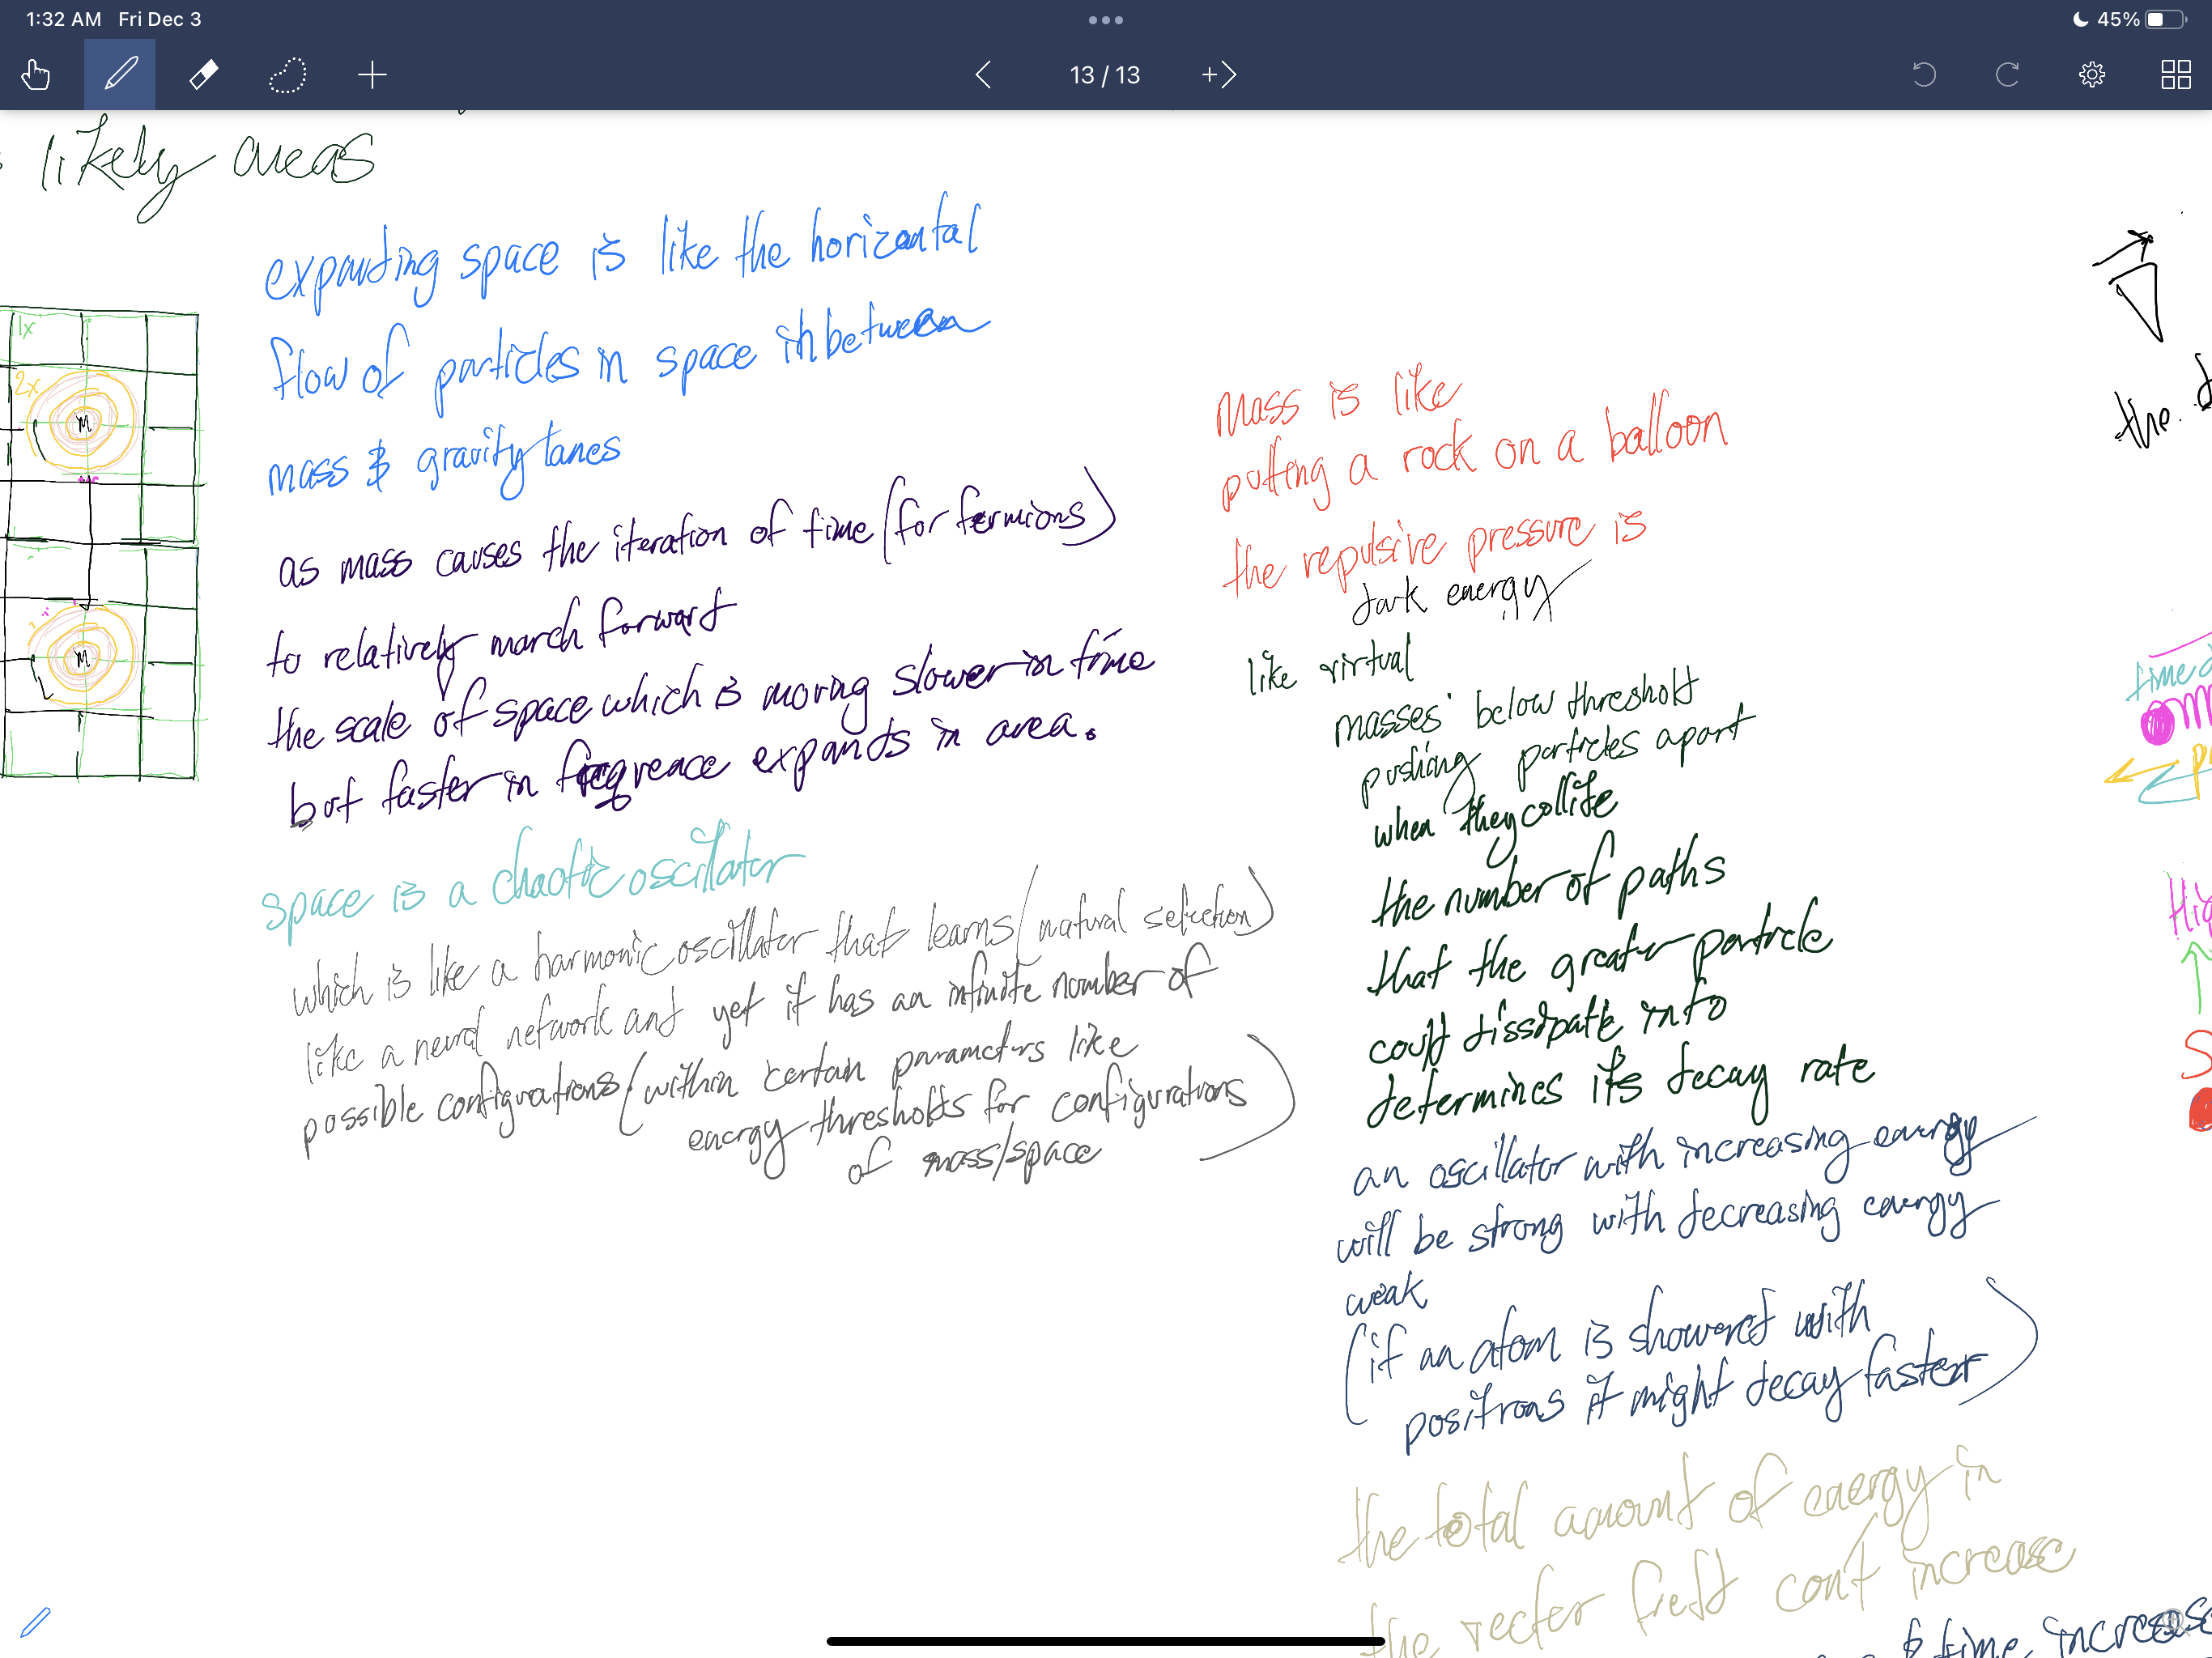 1:32 AM Fri Dec 3
45%
13 / 13
likely areas
1x
2x
M
M
expanding space is like the horizontal
flow of particles in space inbetween
mass & gravity lanes
as mass causes the iteration of time (for fermions)
to relatively march forward
the scale of space which is moving slower in time
but faster in freqreace expands in area.
space is a chaotic oscillator
which is like a harmonic oscillator that learns (natural selection)
like a neural network and yet it has an infinite number of
possible configurations (within certain parameters like
energy thresholds for configurations
of mass/space)
Mass is like
putting a rock on a balloon
the repulsive pressure is
dark energy
like virtual
masses below threshold
pushing particles apart
when they collide
the number of paths
that the greater particle
could dissipate into
determines its decay rate
an oscillator with increasing energy
will be strong with decreasing energy
weak
(if an atom is showered with
positrons it might decay faster)
the total amount of energy in
the vector field can't increase
& time increase
the
time